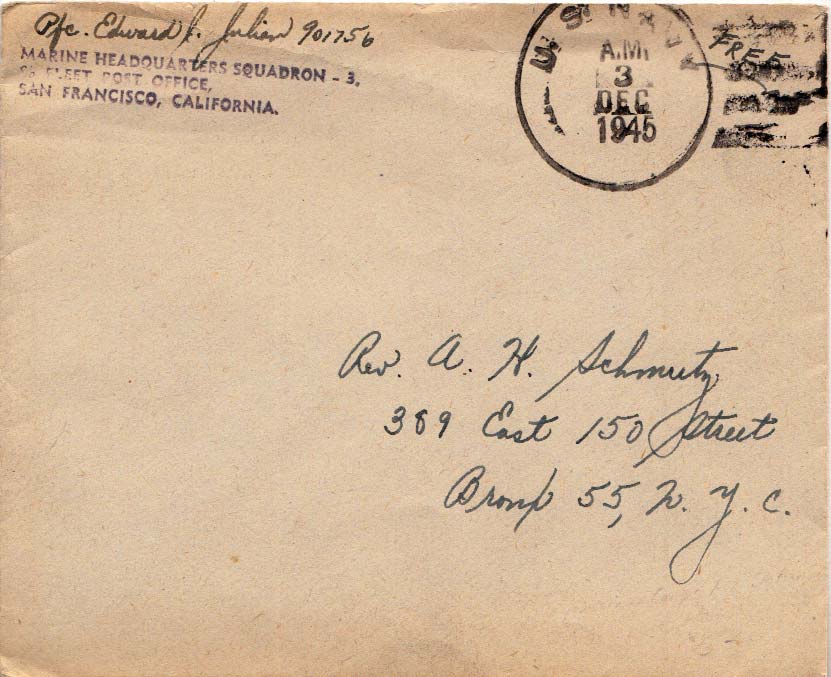 Pfc. Edward J. Julian 901756
MARINE HEADQUARTERS SQUADRON - 3,
% FLEET POST OFFICE,
SAN FRANCISCO, CALIFORNIA.
U.S. NAVY
A.M.
3
DEC
1945
FREE
Rev. A. H. Schmutz
389 East 150 Street
Bronx 55, N. Y. C.